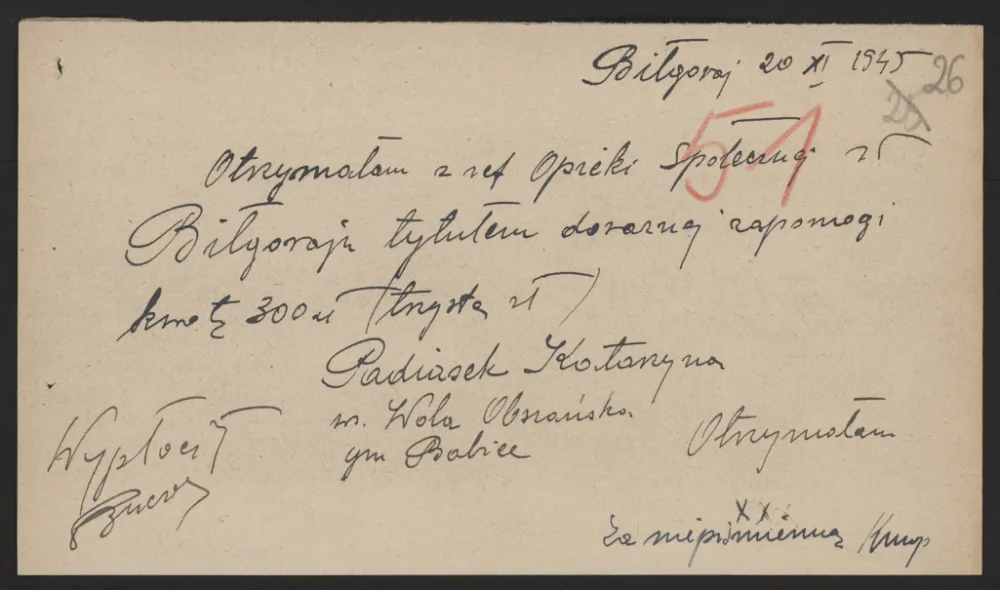 Biłgoraj 20 XI 1945 26
51
Otrzymałam z ref Opieki Społecznej zł
Biłgoraju tytułem doraznej zapomogi
kwotę 300 zł (trzysta zł)
Padiasek Katarzyna
w. Wola Obszańska
gm Babice
Otrzymałam
Wypłacił
XX
Za niepiśmienną